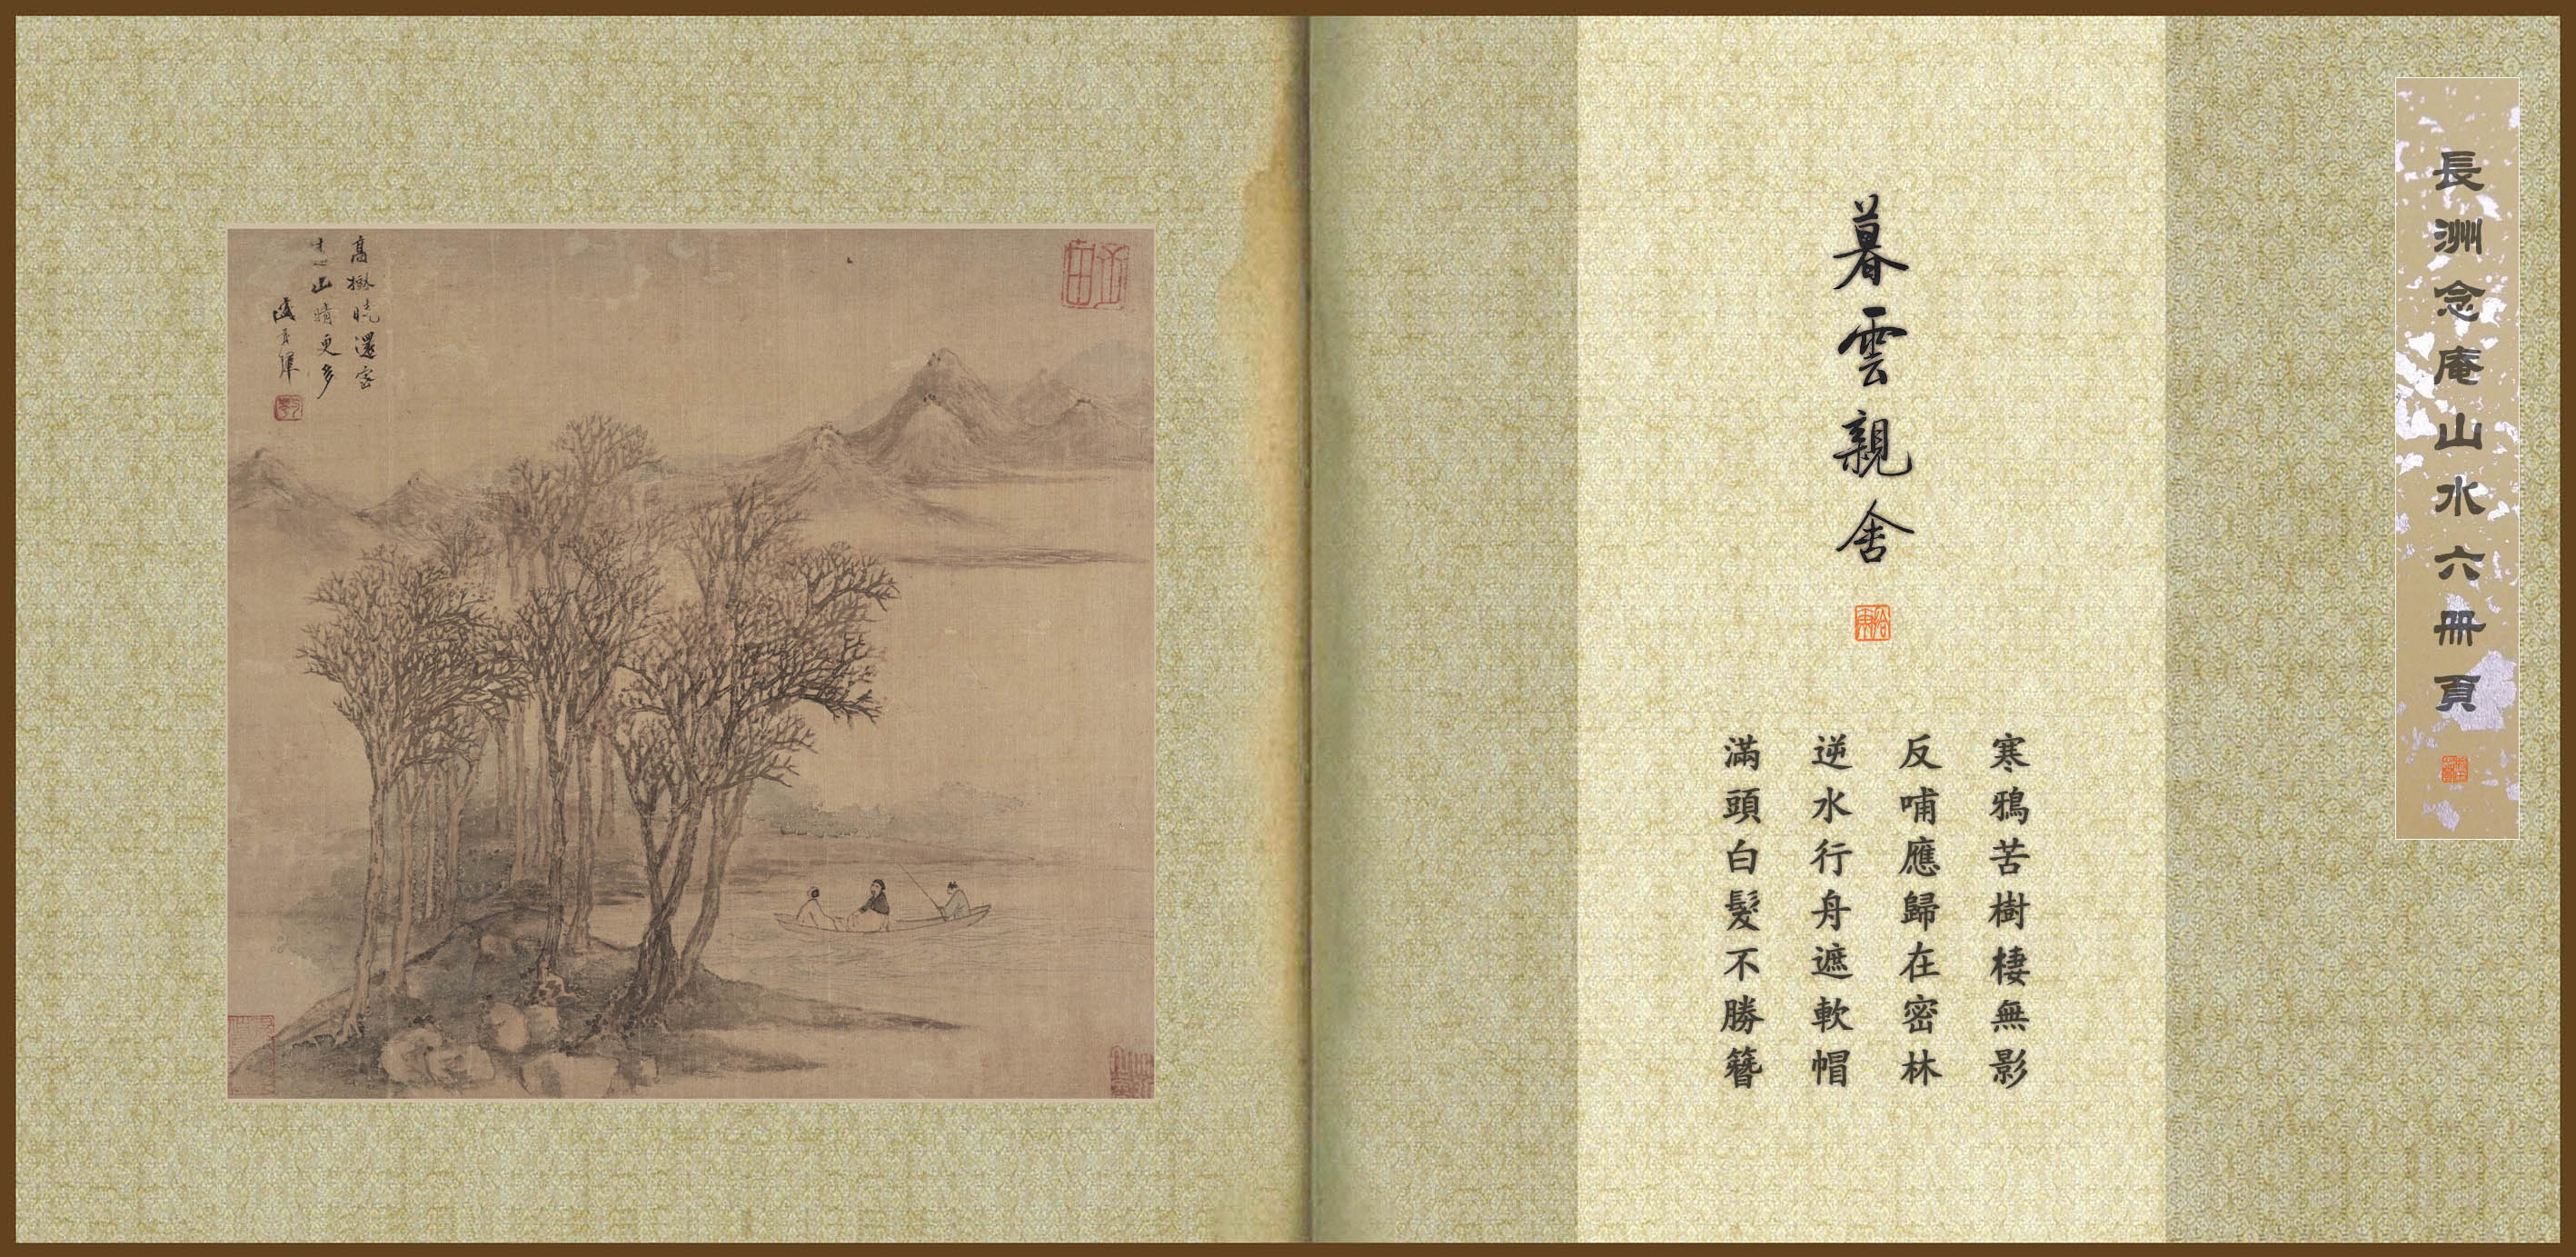 長洲念庵山水六冊頁
暮雲親舍
寒鴉苦樹棲無影
反哺應歸在密林
逆水行舟遮軟帽
滿頭白髮不勝簪
高樹曉還密
山晴更多